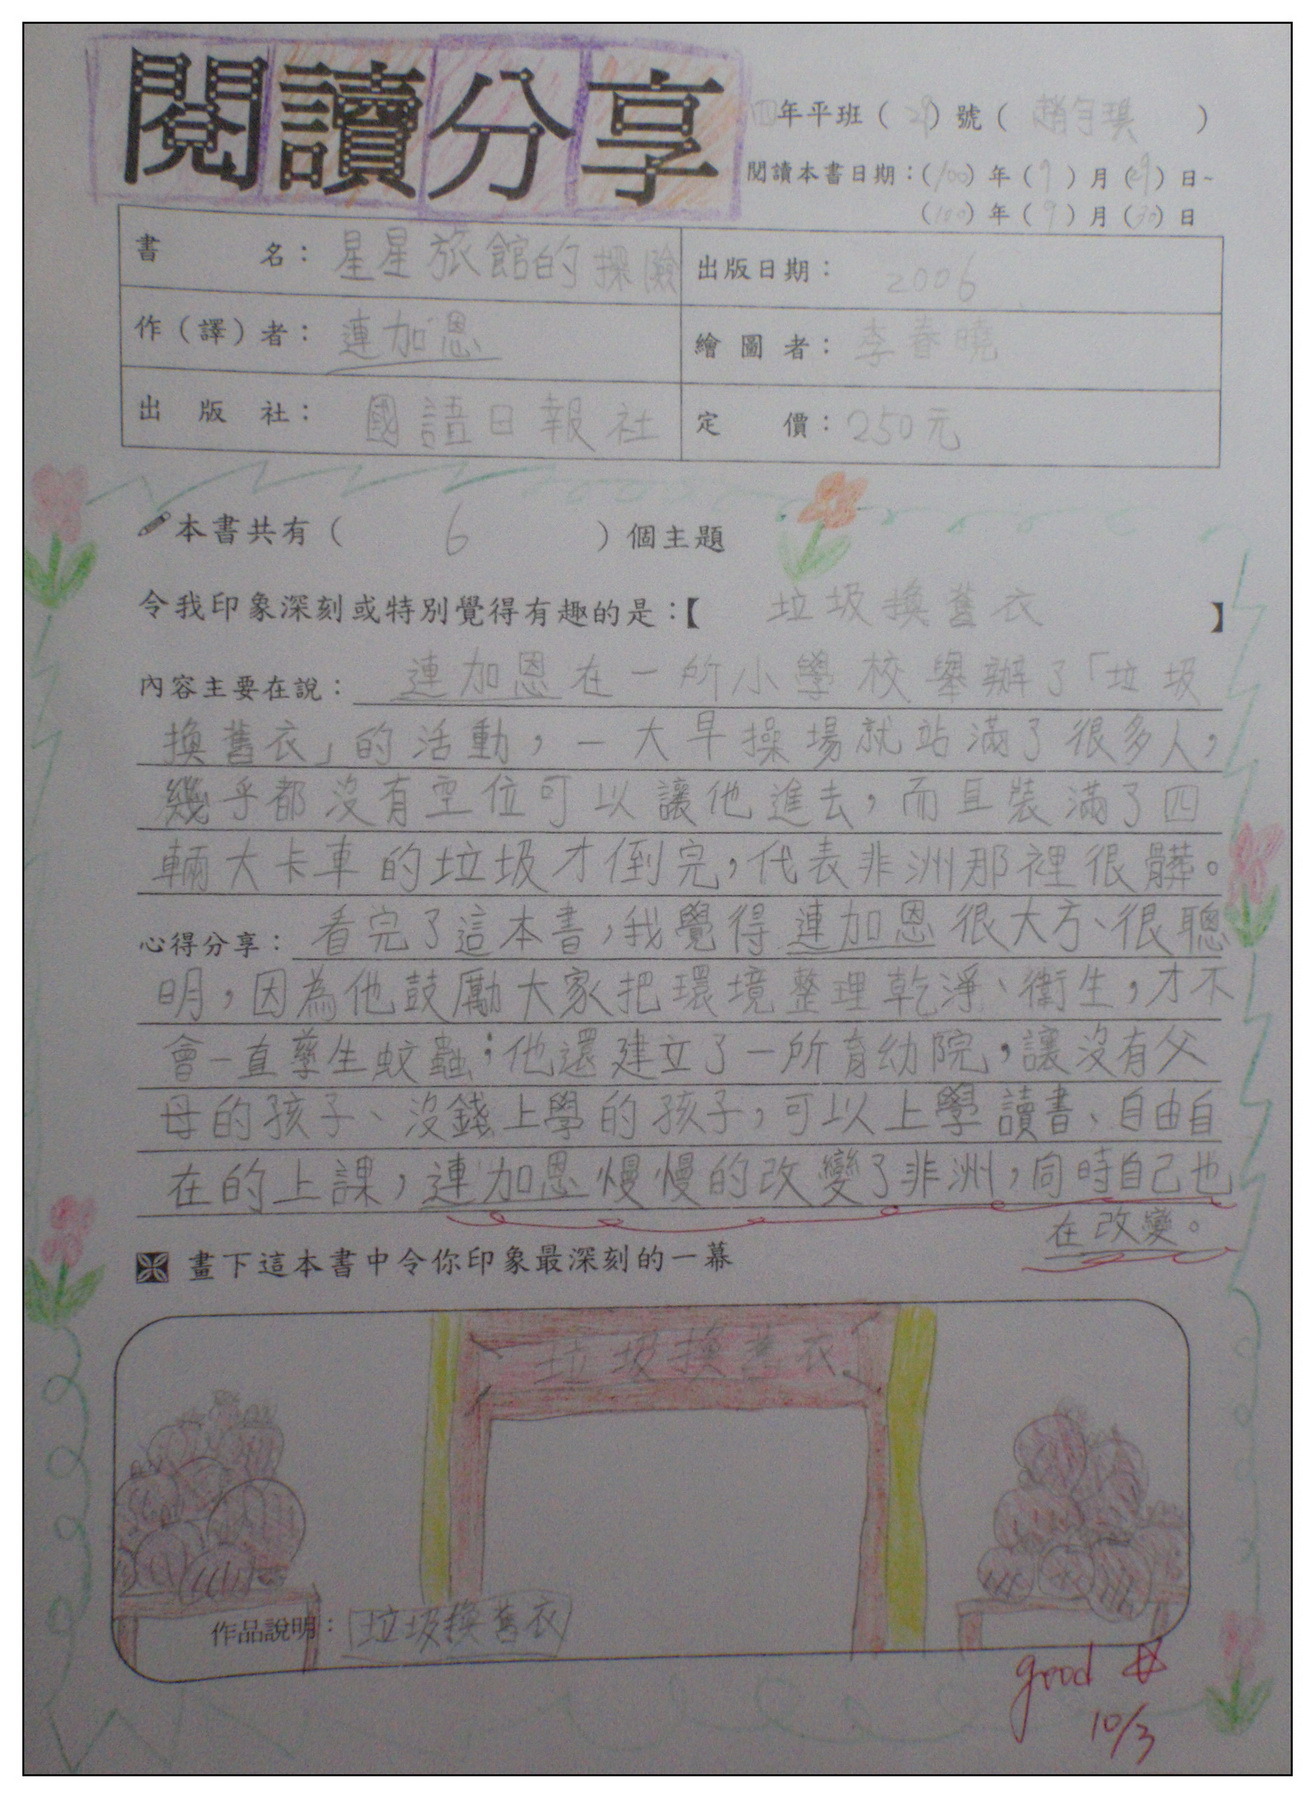 閱讀分享
四年平班(29)號(趙 琪)
閱讀本書日期:(100)年(9)月(29)日~
(100)年(9)月(30)日
書 名: 星星旅館的探險 出版日期: 2006
作(譯)者: 連加恩 繪圖者: 李春曉
出版社: 國語日報社 定價: 250元
本書共有( 6 )個主題
令我印象深刻或特別覺得有趣的是:【 垃圾換舊衣 】
內容主要在說: 連加恩在一所小學校舉辦了「垃圾
換舊衣」的活動,一大早操場就站滿了很多人,
幾乎都沒有空位可以讓他進去,而且裝滿了四
輛大卡車的垃圾才倒完,代表非洲那裡很髒。
心得分享: 看完了這本書,我覺得連加恩很大方、很聰
明,因為他鼓勵大家把環境整理乾淨、衛生,才不
會一直孳生蚊蟲;他還建立了一所育幼院,讓沒有父
母的孩子、沒錢上學的孩子,可以上學讀書、自由自
在的上課,連加恩慢慢的改變了非洲,同時自己也
在改變。
畫下這本書中令你印象最深刻的一幕
垃圾換舊衣
作品說明: 垃圾換舊衣
good
10/3